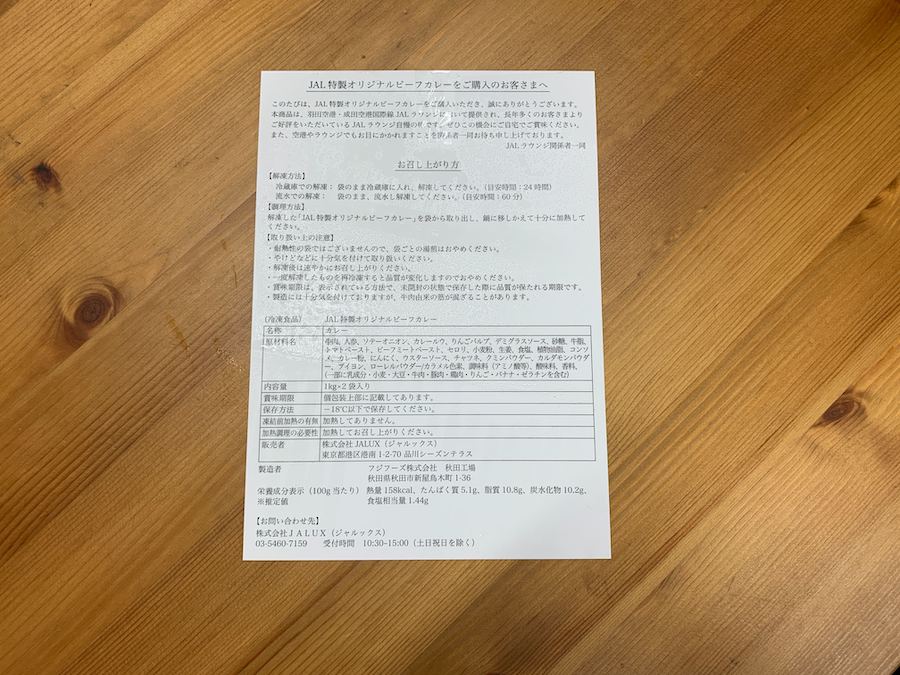 JAL特製オリジナルビーフカレーをご購入のお客さまへ
このたびは、JAL特製オリジナルビーフカレーをご購入いただき、誠にありがとうございます。
本商品は、羽田空港・成田空港国際線JALラウンジにおいて提供され、長年多くのお客さまより
ご好評をいただいているJALラウンジ自慢の味です。ぜひこの機会にご自宅でご賞味ください。
また、空港やラウンジでもお目にかかれますことを関係者一同お待ち申し上げております。
JALラウンジ関係者一同
お召し上がり方
【解凍方法】
冷蔵庫での解凍： 袋のまま冷蔵庫に入れ、解凍してください。（目安時間：24時間）
流水での解凍： 袋のまま、流水し解凍してください。（目安時間：60分）
【調理方法】
解凍した「JAL特製オリジナルビーフカレー」を袋から取り出し、鍋に移しかえて十分に加熱して
ください。
【取り扱い上の注意】
・耐熱性の袋ではございませんので、袋ごとの湯煎はおやめください。
・やけどなどに十分気を付けて取り扱いください。
・解凍後は速やかにお召し上がりください。
・一度解凍したものを再冷凍すると品質が変化しますのでおやめください。
・賞味期限は、表示されている方法で、未開封の状態で保存した際に品質が保たれる期限です。
・製造には十分気を付けておりますが、牛肉由来の筋が混ざることがあります。
（冷凍食品） JAL特製オリジナルビーフカレー
名称 カレー
原材料名 牛肉、人参、ソテーオニオン、カレールウ、りんごパルプ、デミグラスソース、砂糖、牛脂、
トマトペースト、ビーフミートペースト、セロリ、小麦粉、生姜、食塩、植物油脂、コンソ
メ、カレー粉、にんにく、ウスターソース、チャツネ、クミンパウダー、カルダモンパウダ
ー、ブイヨン、ローレルパウダー/カラメル色素、調味料（アミノ酸等）、酸味料、香料、
（一部に乳成分・小麦・大豆・牛肉・豚肉・鶏肉・りんご・バナナ・ゼラチンを含む）
内容量 1kg×2袋入り
賞味期限 個包装上部に記載してあります。
保存方法 −18℃以下で保存してください。
凍結前加熱の有無 加熱してありません。
加熱調理の必要性 加熱してお召し上がりください。
販売者 株式会社JALUX（ジャルックス）
東京都港区港南1-2-70品川シーズンテラス
製造者 フジフーズ株式会社 秋田工場
秋田県秋田市新屋鳥木町1-36
栄養成分表示（100g当たり） 熱量158kcal、たんぱく質5.1g、脂質10.8g、炭水化物10.2g、
※推定値 食塩相当量1.44g
【お問い合わせ先】
株式会社JALUX（ジャルックス）
03-5460-7159 受付時間 10:30–15:00（土日祝日を除く）